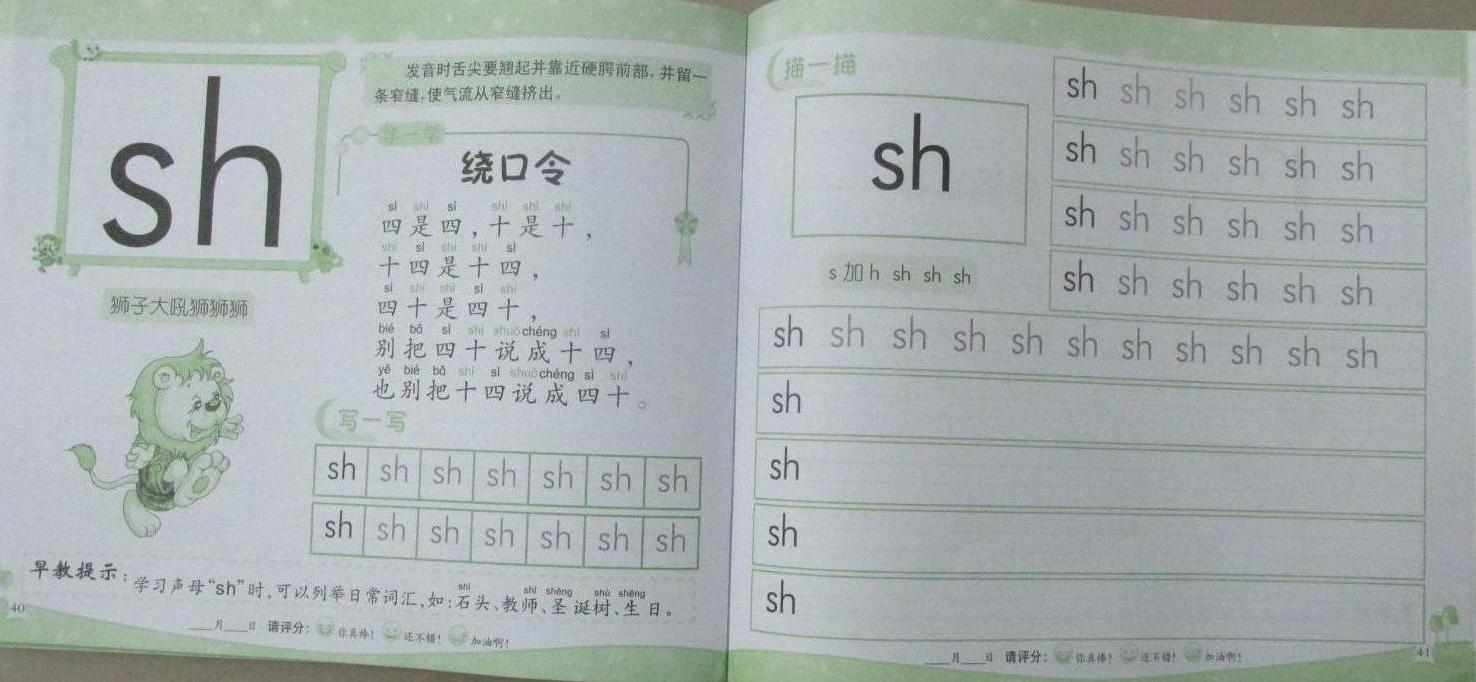 sh
发音时舌尖要翘起并靠近硬腭前部，并留一
条窄缝，使气流从窄缝挤出。
学一学
绕口令
sì shì sì shí shì shí
四是四，十是十，
shí sì shì shí sì
十四是十四，
sì shí shì sì shí
四十是四十，
bié bǎ sì shí shuō chéng shí sì
别把四十说成十四，
yě bié bǎ shí sì shuō chéng sì shí
也别把十四说成四十。
狮子大吼狮狮狮
写一写
sh sh sh sh sh sh sh
sh sh sh sh sh sh sh
shí shī shèng shù shēng
早教提示：学习声母“sh”时，可以列举日常词汇，如：石头、教师、圣诞树、生日。
40
____月____日 请评分： 你真棒！ 还不错！ 加油啊！
描一描
sh
s 加 h sh sh sh
sh sh sh sh sh sh
sh sh sh sh sh sh
sh sh sh sh sh sh
sh sh sh sh sh sh
sh sh sh sh sh sh sh sh sh sh sh
sh
sh
sh
sh
____月____日 请评分： 你真棒！ 还不错！ 加油啊！
41